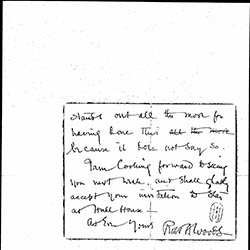 stands out all the more for
having done this all the more
because it does not say so.
I am looking forward to seeing
you next week, and shall gladly
accept your invitation to stay
at Hull House
As Ever Yours Robt A Woods